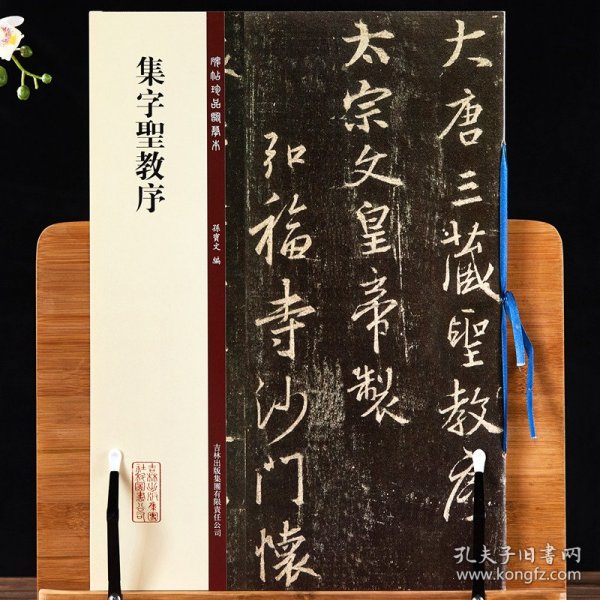 集字聖教序
碑帖珍品臨摹本
孫寶文 編
吉林出版集團有限責任公司
大唐三藏聖教序
太宗文皇帝製
弘福寺沙門懷
孔夫子旧书网
www.kongfz.com